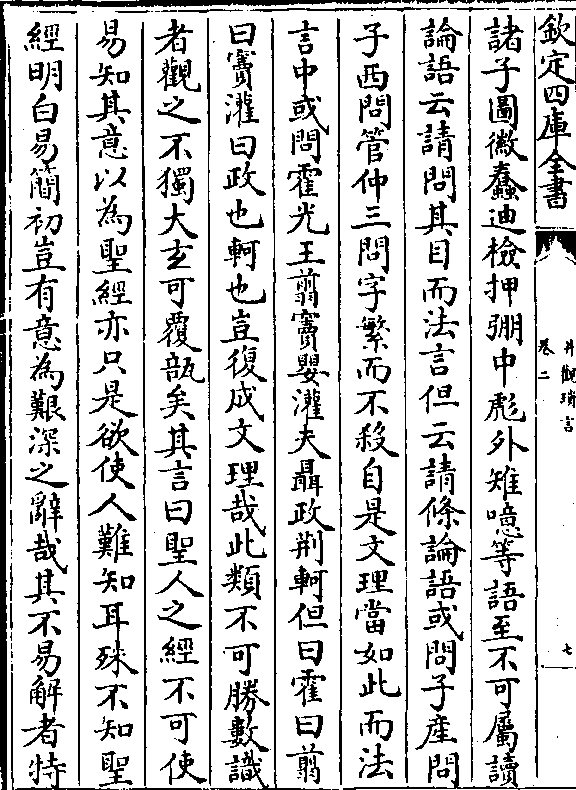 欽定四庫全書
井觀瑣言
卷二
七
諸子圖徽蠢迪檢押弸中彪外雉噫等語至不可屬讀
論語云請問其目而法言但云請條論語或問子産問
子西問管仲三問字繁而不殺自是文理當如此而法
言中或問霍光王翦竇嬰灌夫聶政荆軻但曰霍曰翦
曰竇灌曰政也軻也豈復成文理哉此類不可勝數識
者觀之不獨大玄可覆瓿矣其言曰聖人之經不可使
易知其意以為聖經亦只是欲使人難知耳殊不知聖
經明白易簡初豈有意為艱深之辭哉其不易解者特